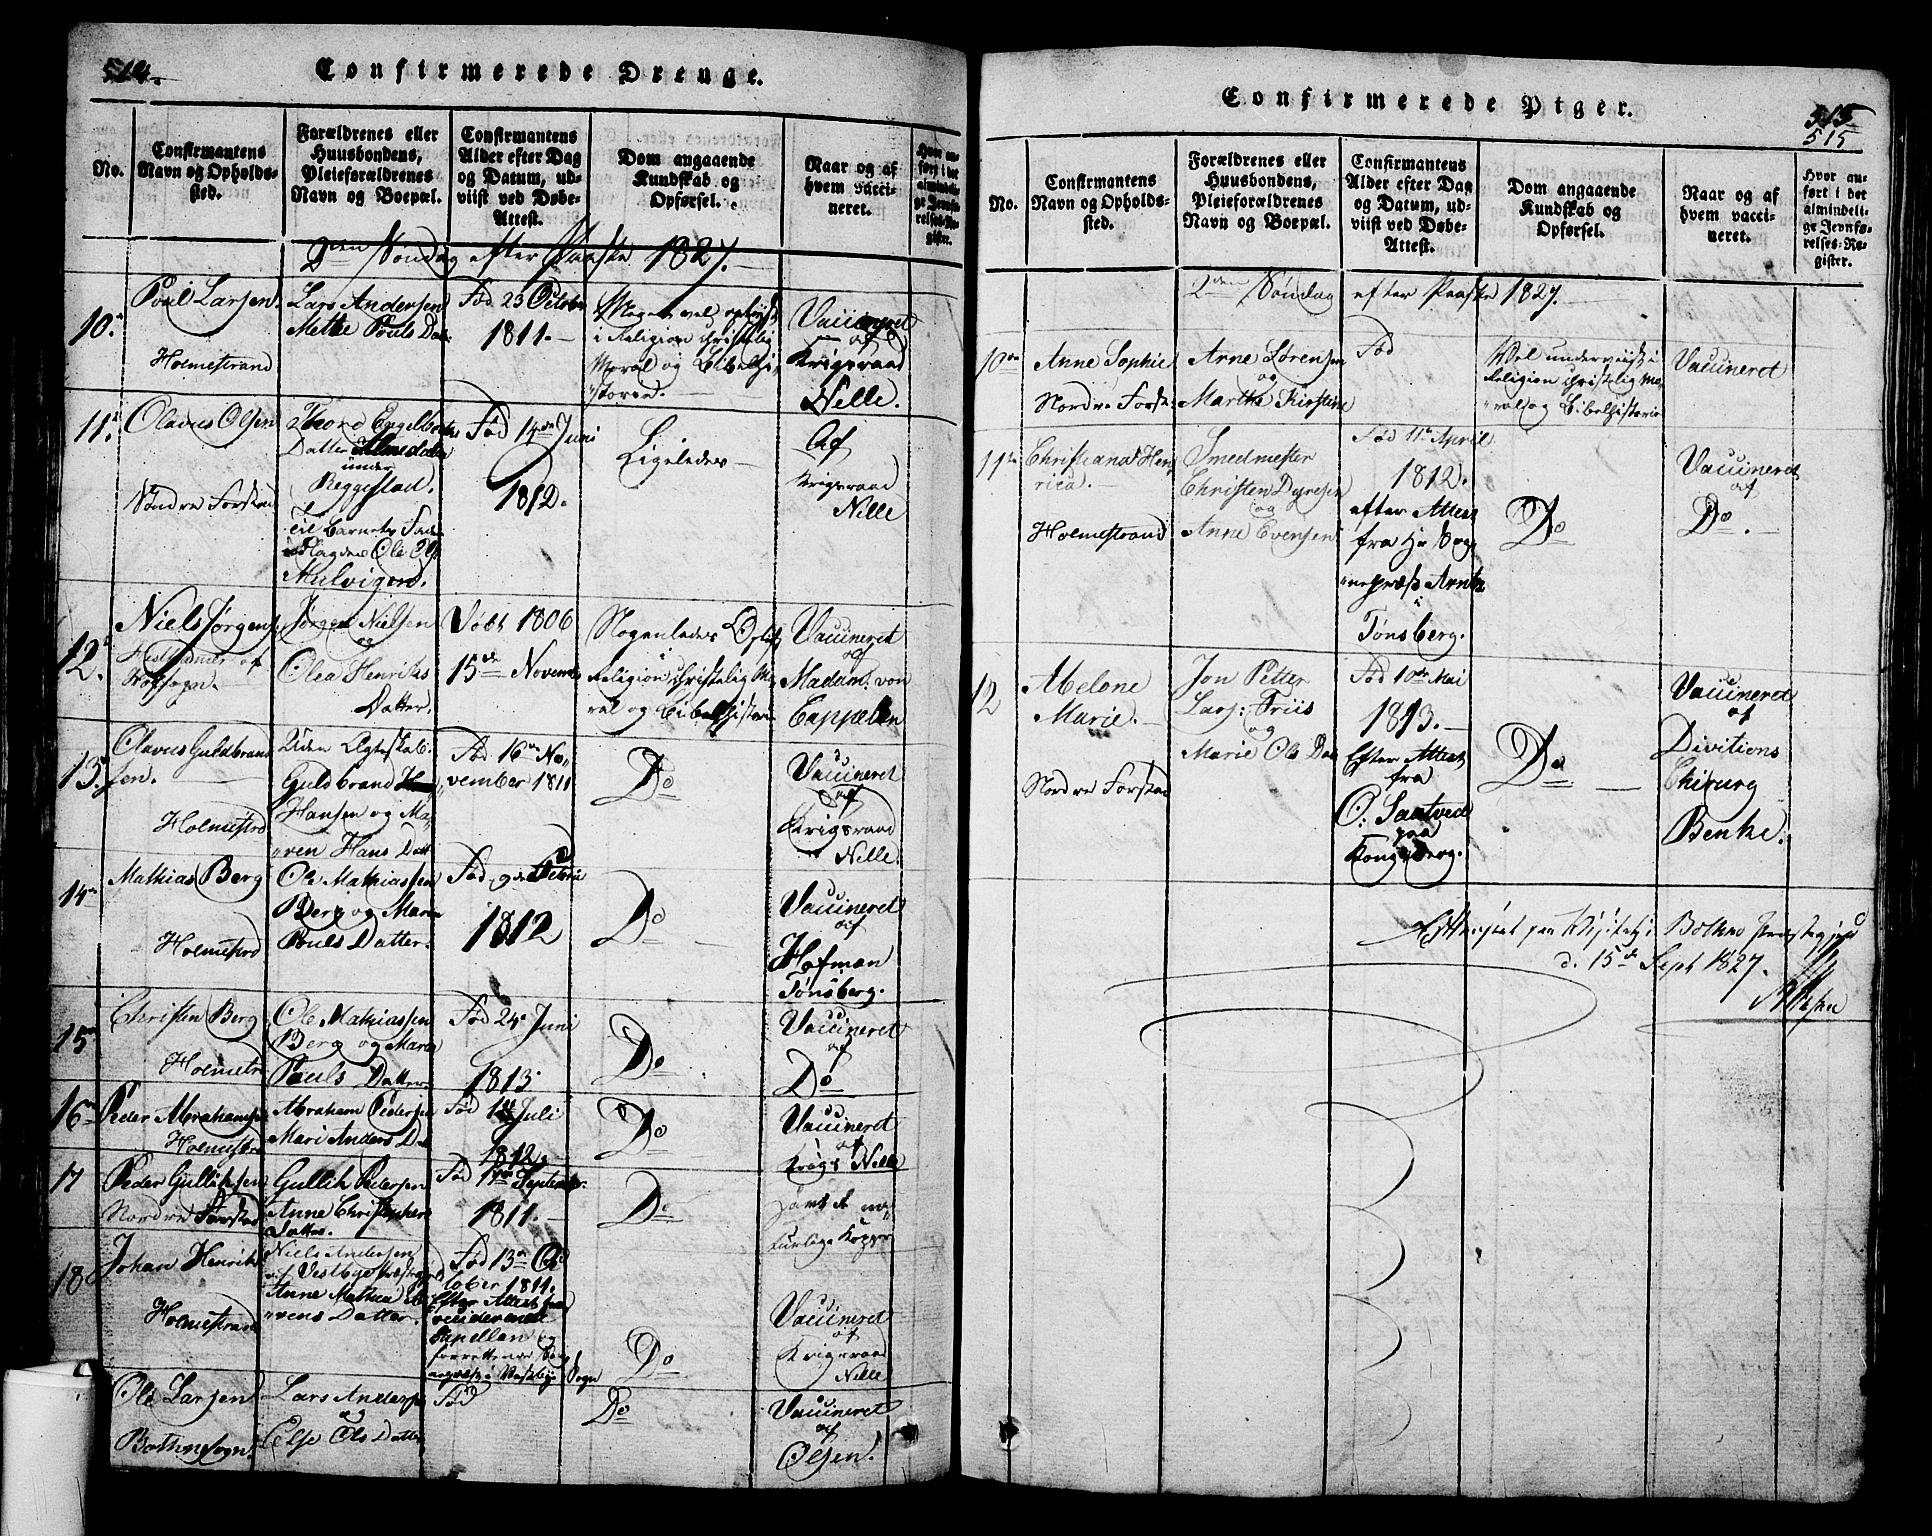 514.
Confirmerede Drenge.
No.
Confirmantens
Navn og Opholds-
sted.
Forældrenes eller
Huusbondens,
Pleieforældrenes
Navn og Boepæl.
Confirmantens
Alder efter Dag
og Datum, ud-
viist ved Døbe-
Attest.
Dom angaaende
Kundskab og
Opførsel.
Naar og af
hvem vacci-
neret.
Hvor an-
ført i det
almindeli-
ge Jevnfø-
relses-Re-
gister.
2den Søndag efter Paaske 1827.
10.
Poul Larsen
Holmestrand
Lars Andersen
Mette Pouls Dat
Fød 23 October
1811.
Meget vel oplyst
i Religion christelig
Moral og Bibelhi-
storie.
Vaccineret
af
Krigsraad
Nelle.
11.
Olavus Olsen
Søndre Forstad
Thore Engelbrets
Datter
under
Reggestad.
Til Barnets Fader
Ole
Mulvigen.
Fød 14de Juni
1812.
Ligeledes
Af
Krigsraad
Nelle
12.
Niels Jørgens
af
Jørgen Nielsen
og
Olea Henriks
Datter.
Døbt 1806
15de Novem
Nogenledes Oplyst
i
Religion christelig Mo
ral og Bibelhistorie
Vaccineret
af
Madam: von
Cappelen
13.
Olavus Guldbrand
sen.
Holmestrd
Uden Ægteskab.
Guldbrand
Hansen og Ma
ren Hans Datt
Fød 16de No
vember 1811
Do
Vaccineret
af
Krigsraad
Nelle.
14
Mathias Berg
Holmestrd
Ole Mathiassen
Berg og Maren
Pouls Datter.
Fød 9de
1812
Do
Vaccineret
af
Hofman
Tønsberg.
15
Christen Berg
Holmestr
Ole Mathiassen
Berg og Maren
Pouls Datter.
Fød 24 Juni
1813.
Do
Vaccineret
af
Do
16
Peder Abrahamsen
Holmestr
Abraham Pedersen
Mari Anders D
Fød Juli
1812.
Do
Vaccineret
af
Krigs Nelle
17
Peder Gulliksen
Nordre Forstad
Gullik Pedersen
Anne Christophers
Datter.
Fød 1 September
1811.
Do
havt de na
turlige Kopper
18
Johan Henrik
Holmestrand
Niels Andersen
af Vestbye Præstegjeld
Anne Mathea
vens Datter.
Fød 13de Oc
tober 1811.
Efter Attest fra
residerende
Capellan og
Vestbye Sogn
Do
Vaccineret
af
Krigsraad
Nelle
Ole Larsen
Bothne Sogn.
Lars Anders
og
Else Ols Datter
Fød
Do
Vaccineret
af
Olsen.
Confirmerede Piger.
515
515
No.
Confirmantens
Navn og Opholds-
sted.
Forældrenes eller
Huusbondens,
Pleieforældrenes
Navn og Boepæl.
Confirmantens
Alder efter Dag
og Datum, ud-
viist ved Døbe-
Attest.
Dom angaaende
Kundskab og
Opførsel.
Naar og af
hvem vacci-
neret.
Hvor an-
ført i det
almindeli-
ge Jevnfø-
relses-Re-
gister.
2den Søndag efter Paaske 1827.
10de
Anne Sophie
Nordre Forst
Arne Lørensen
og
Marthe Kirstine
Fød
Vel underviist i
Religion christelig Mo
ral og Bibelhistorie
Vaccineret
11te
Christiana Hen
rica.
Holmestrand
Smedmester
Christen Dyresen
og
Anne Evensen
Fød 11te April
1812.
efter Attest
fra Hr Sog
nepræst
i
Tønsberg.
Do
Vaccineret
af
Do.
12
Abelone
Marie.
Nordre Forstad
Jon Petter
Lars: Friis
og
Marie Ols Dat
Fød 10de Mai
1813.
Efter Attest
fra
O: Saatved
paa
Kongsberg.
Do
Vaccineret
af
Divitions
Chirurg
Benke.
Bothne Præstegjeld
d. 15de Sept 1827.